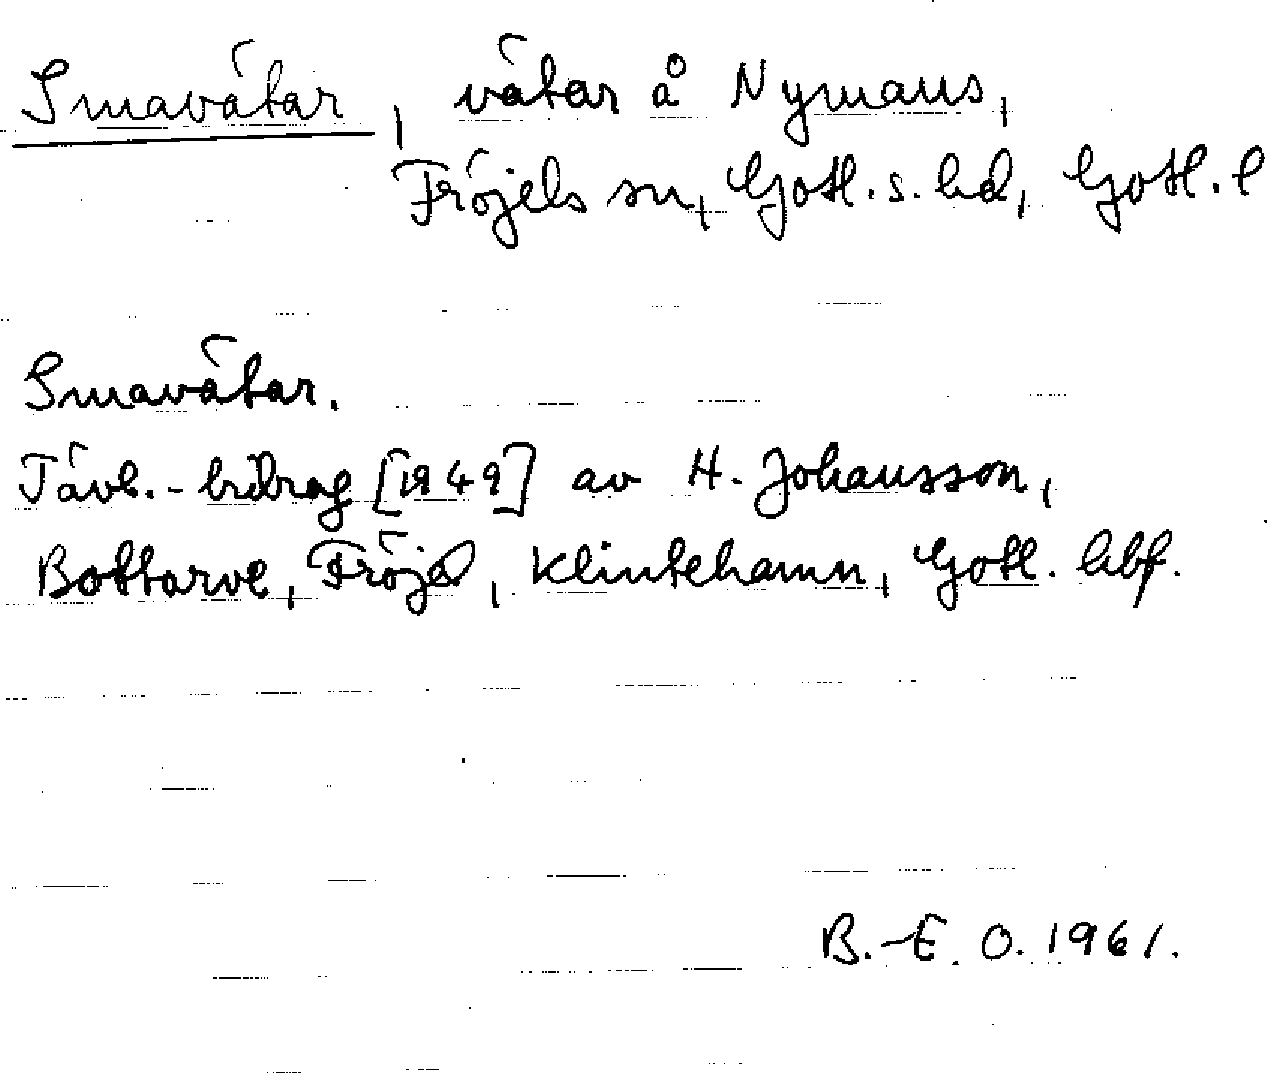 Smavätar, vätar å Nymans,
Fröjels sn, Gotl. s. hd, Gotl. l
Smavätar.
Tävl.-bidrag [1949] av H. Johansson,
Bottarve, Fröjel, Klintehamn, Gotl. hbf.
B.-E. O. 1961.